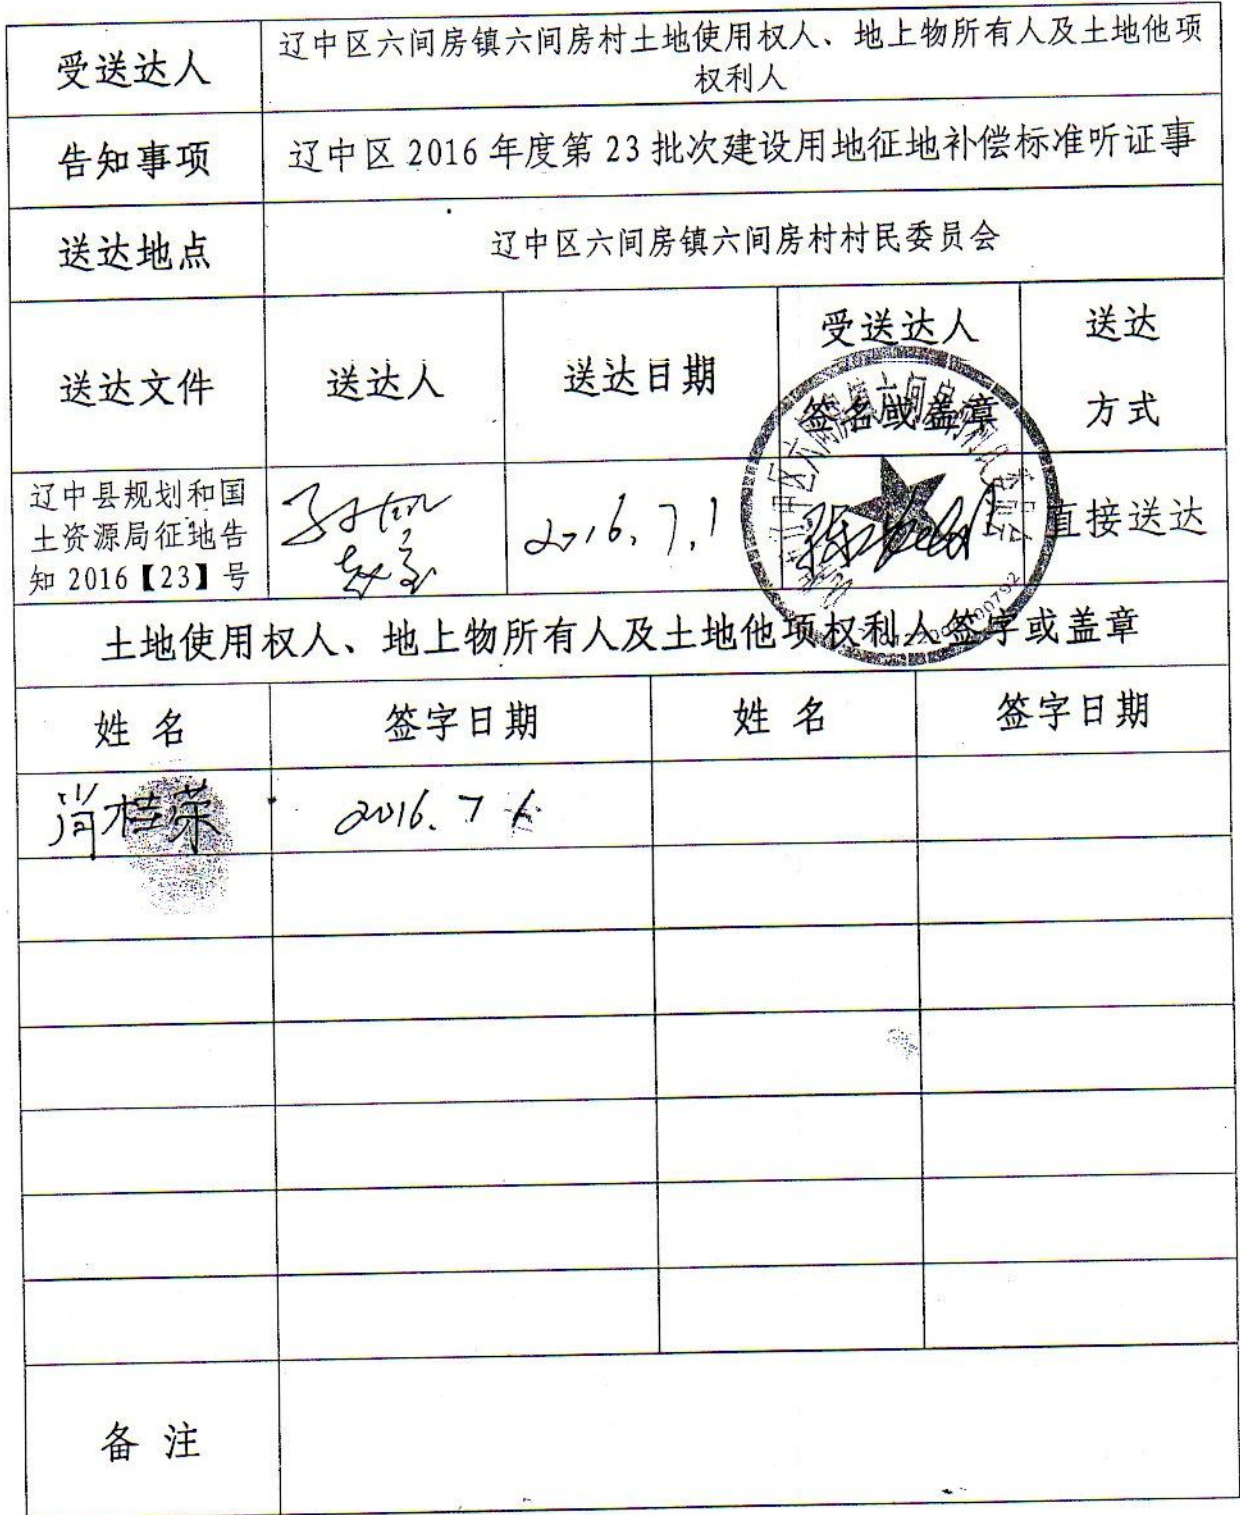 受送达人
辽中区六间房镇六间房村土地使用权人、地上物所有人及土地他项
权利人
告知事项
辽中区 2016 年度第 23 批次建设用地征地补偿标准听证事
送达地点
辽中区六间房镇六间房村村民委员会
送达文件
送达人
送达日期
受送达人
签名或盖章
送达
方式
辽中县规划和国
土资源局征地告
知 2016【23】号
2016.7.1
直接送达
土地使用权人、地上物所有人及土地他项权利人签字或盖章
姓名
签字日期
姓名
签字日期
肖桂荣
2016.7
备注